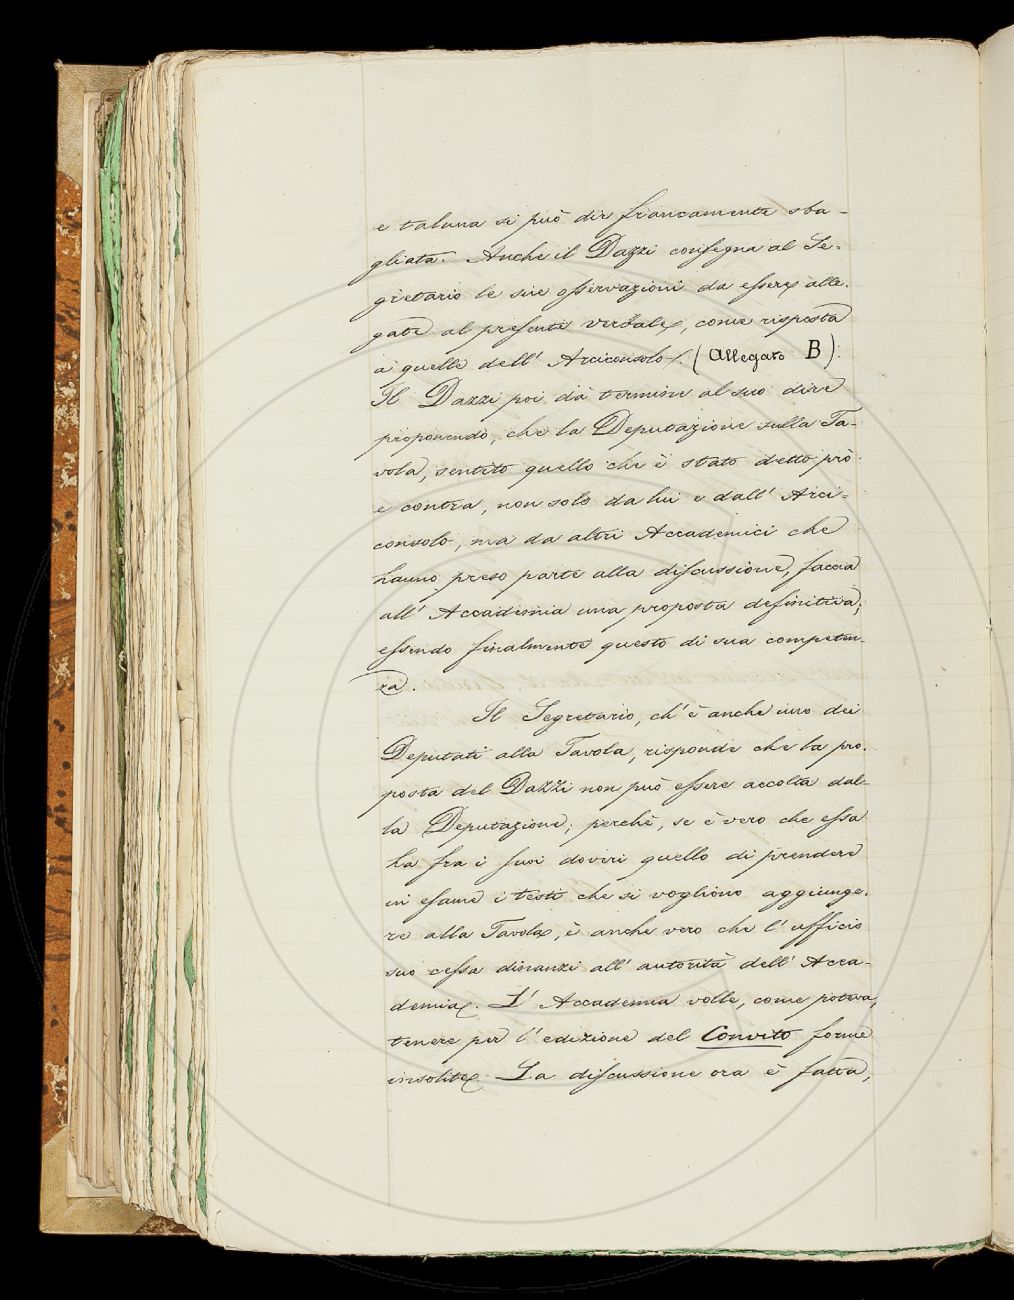 e taluna si può dir francamente sba-
gliata. Anche il Dazzi consegna al Se-
gretario le sue osservazioni da essere alle-
gate al presente verbale, come risposta
a quelle dell' Arciconsolo. (Allegato B).
Il Dazzi poi dà termine al suo dire
proponendo, che la Deputazione sulla Ta-
vola, sentito quello che è stato detto prò
e contra, non solo da lui e dall' Arci-
consolo, ma da altri Accademici che
hanno preso parte alla discussione, faccia
all' Accademia una proposta definitiva;
essendo finalmente questo di sua competen-
za.
Il Segretario, ch' è anche uno dei
Deputati alla Tavola, risponde che la pro-
posta del Dazzi non può essere accolta dal-
la Deputazione; perchè, se è vero che essa
ha fra i suoi doveri quello di prendere
in esame i testi che si vogliono aggiunge-
re alla Tavola, è anche vero che l' ufficio
suo cessa dinanzi all' autorità dell' Acca-
demia. L' Accademia volle, come poteva,
tenere per l' edizione del Convito forme
insolite. La discussione ora è fatta,